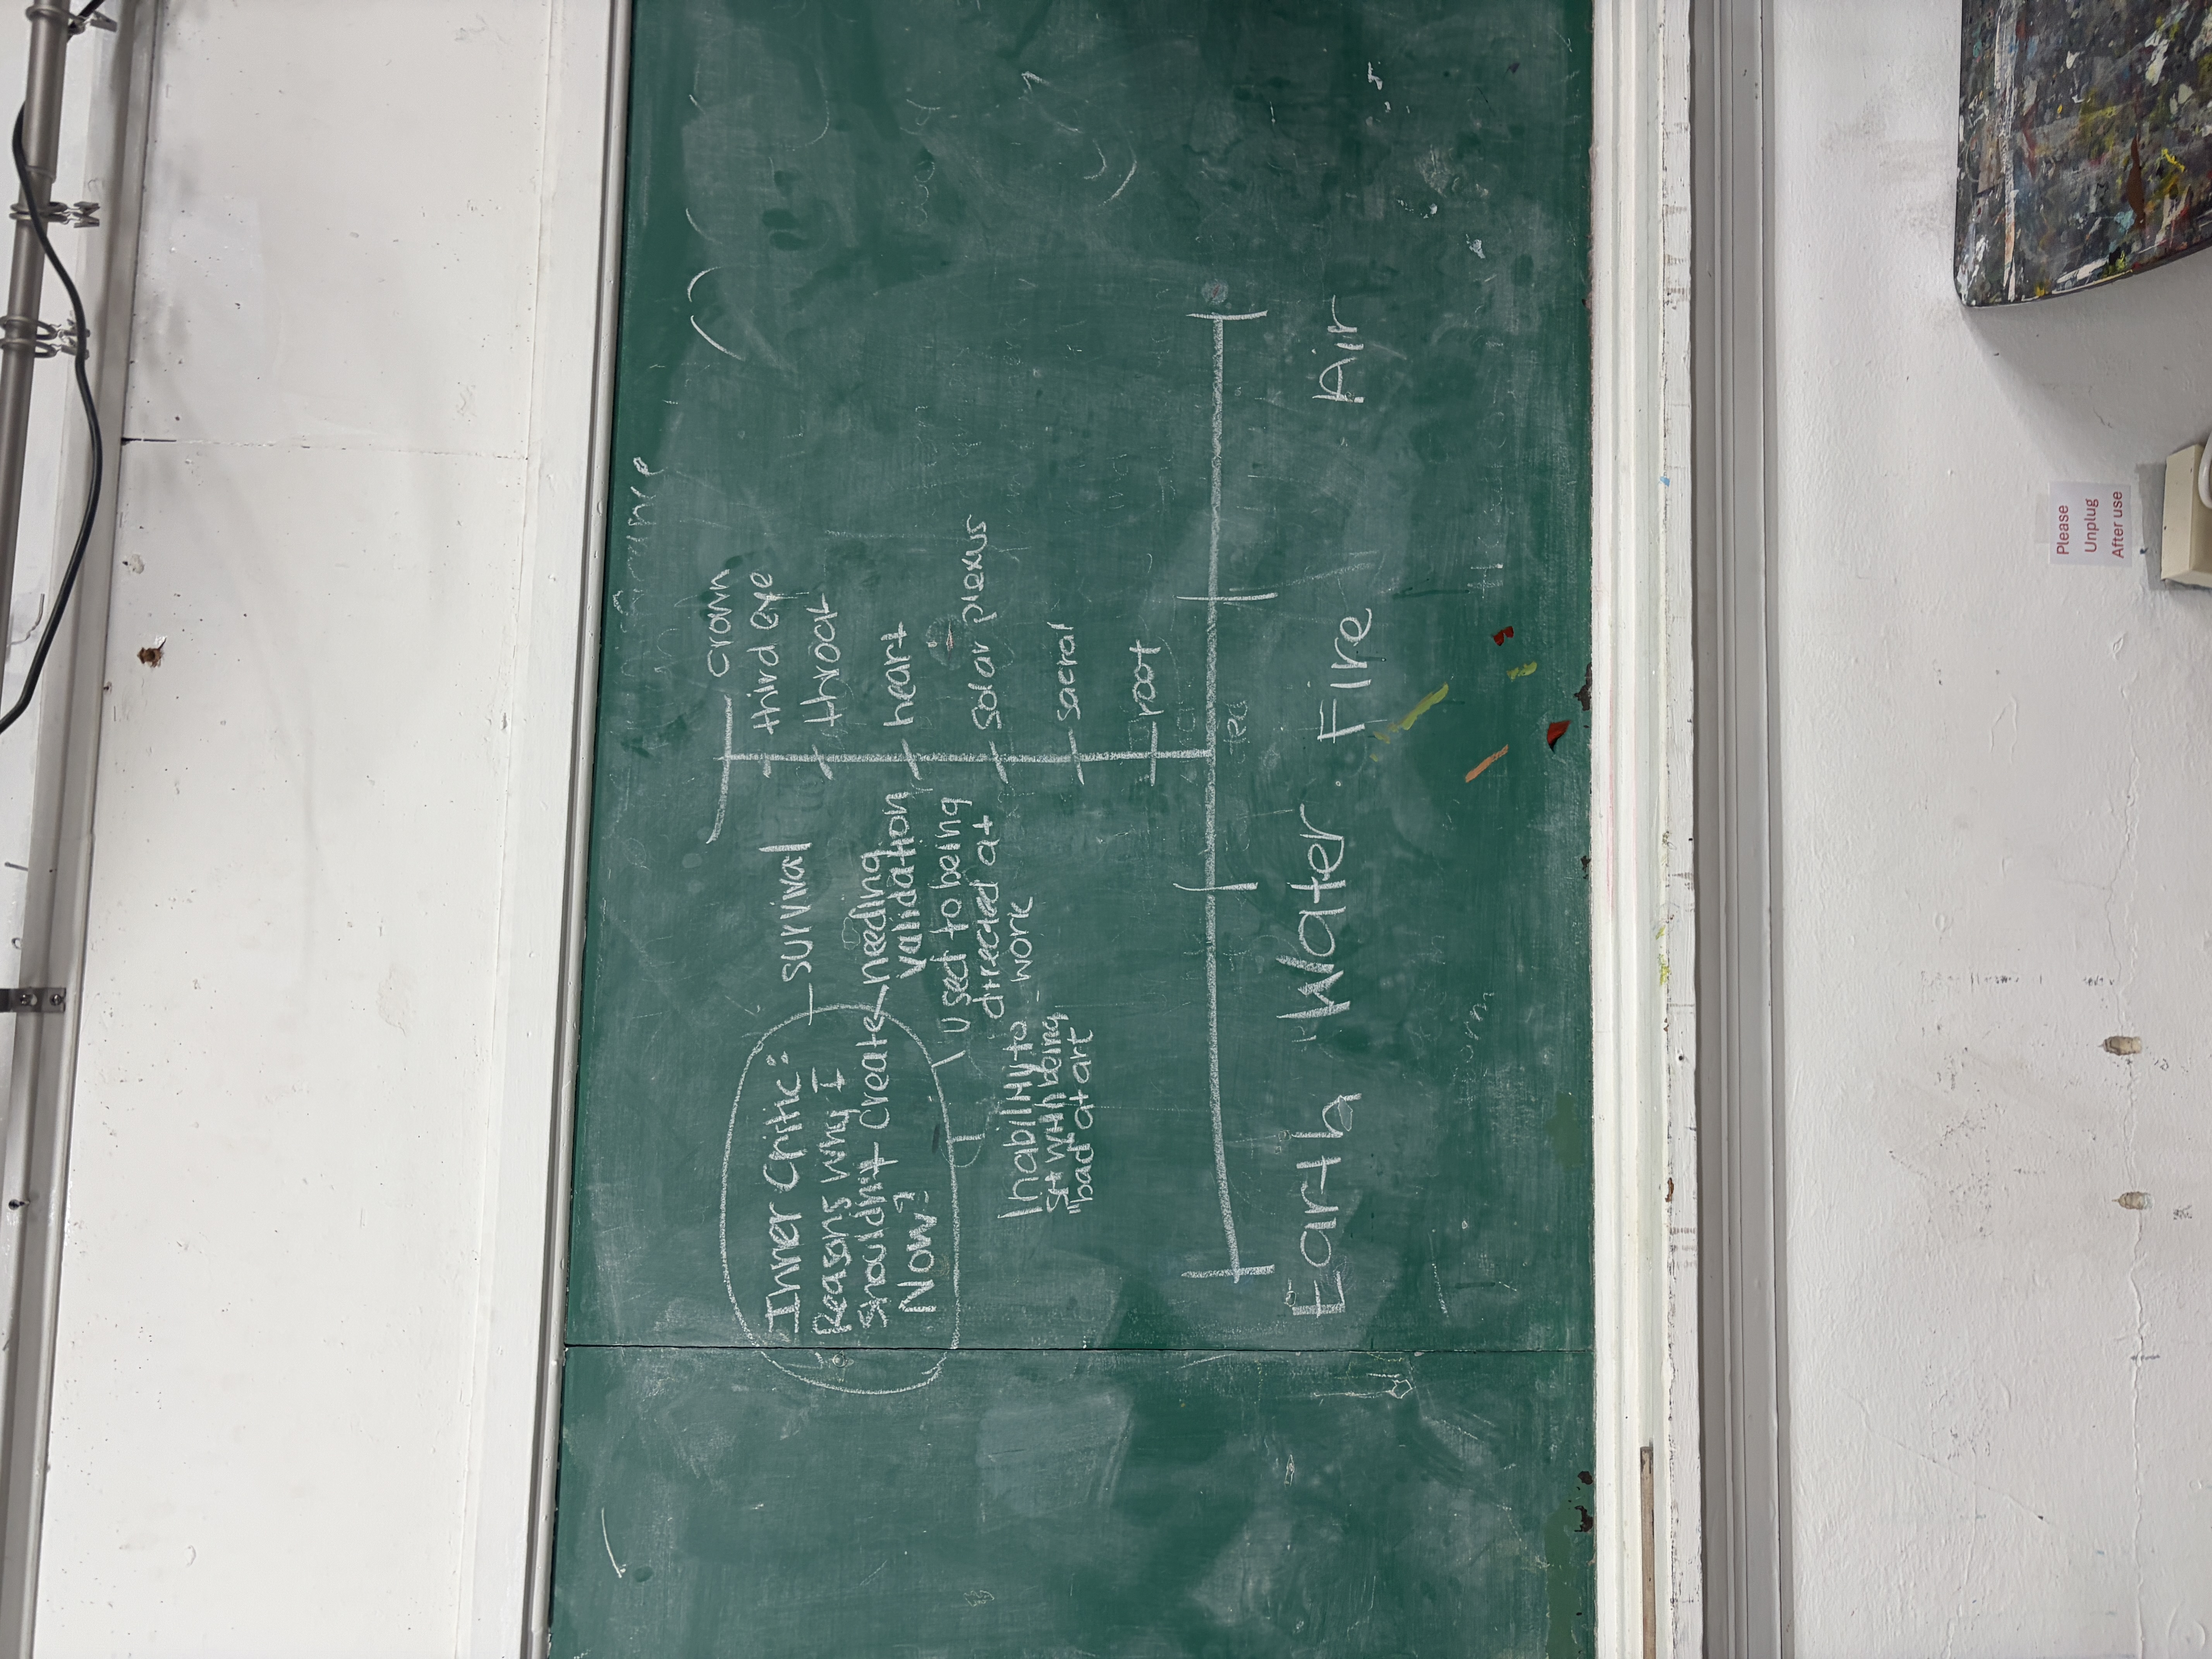 Inner Critic:
Reasons why I
shouldn't create
Now?
- survival
needing
validation
used to being
directed at
work
Inability to
sit with being
"bad at art"
crown
third eye
throat
heart
solar plexus
sacral
root
Earth Water Fire Air
Please
Unplug
After use